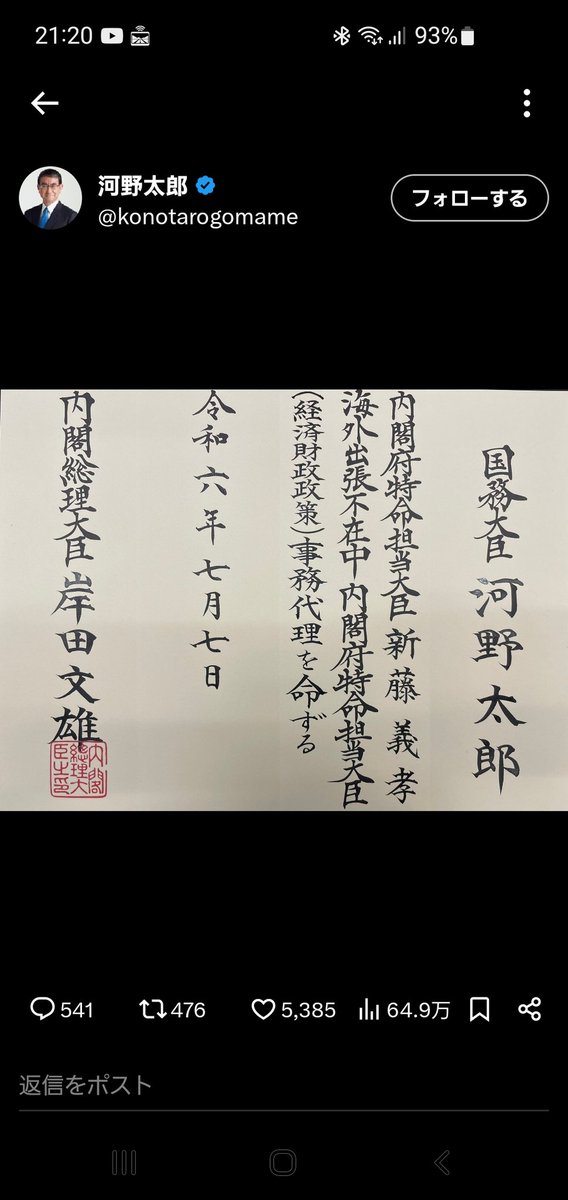 21:20
93%
河野太郎
@konotarogomame
フォローする
国務大臣 河野太郎
内閣府特命担当大臣 新藤義孝
海外出張不在中 内閣府特命担当大臣
(経済財政政策)事務代理を命ずる
令和六年七月七日
内閣総理大臣 岸田文雄
内閣
總理大
臣之印
541
476
5,385
64.9万
返信をポスト